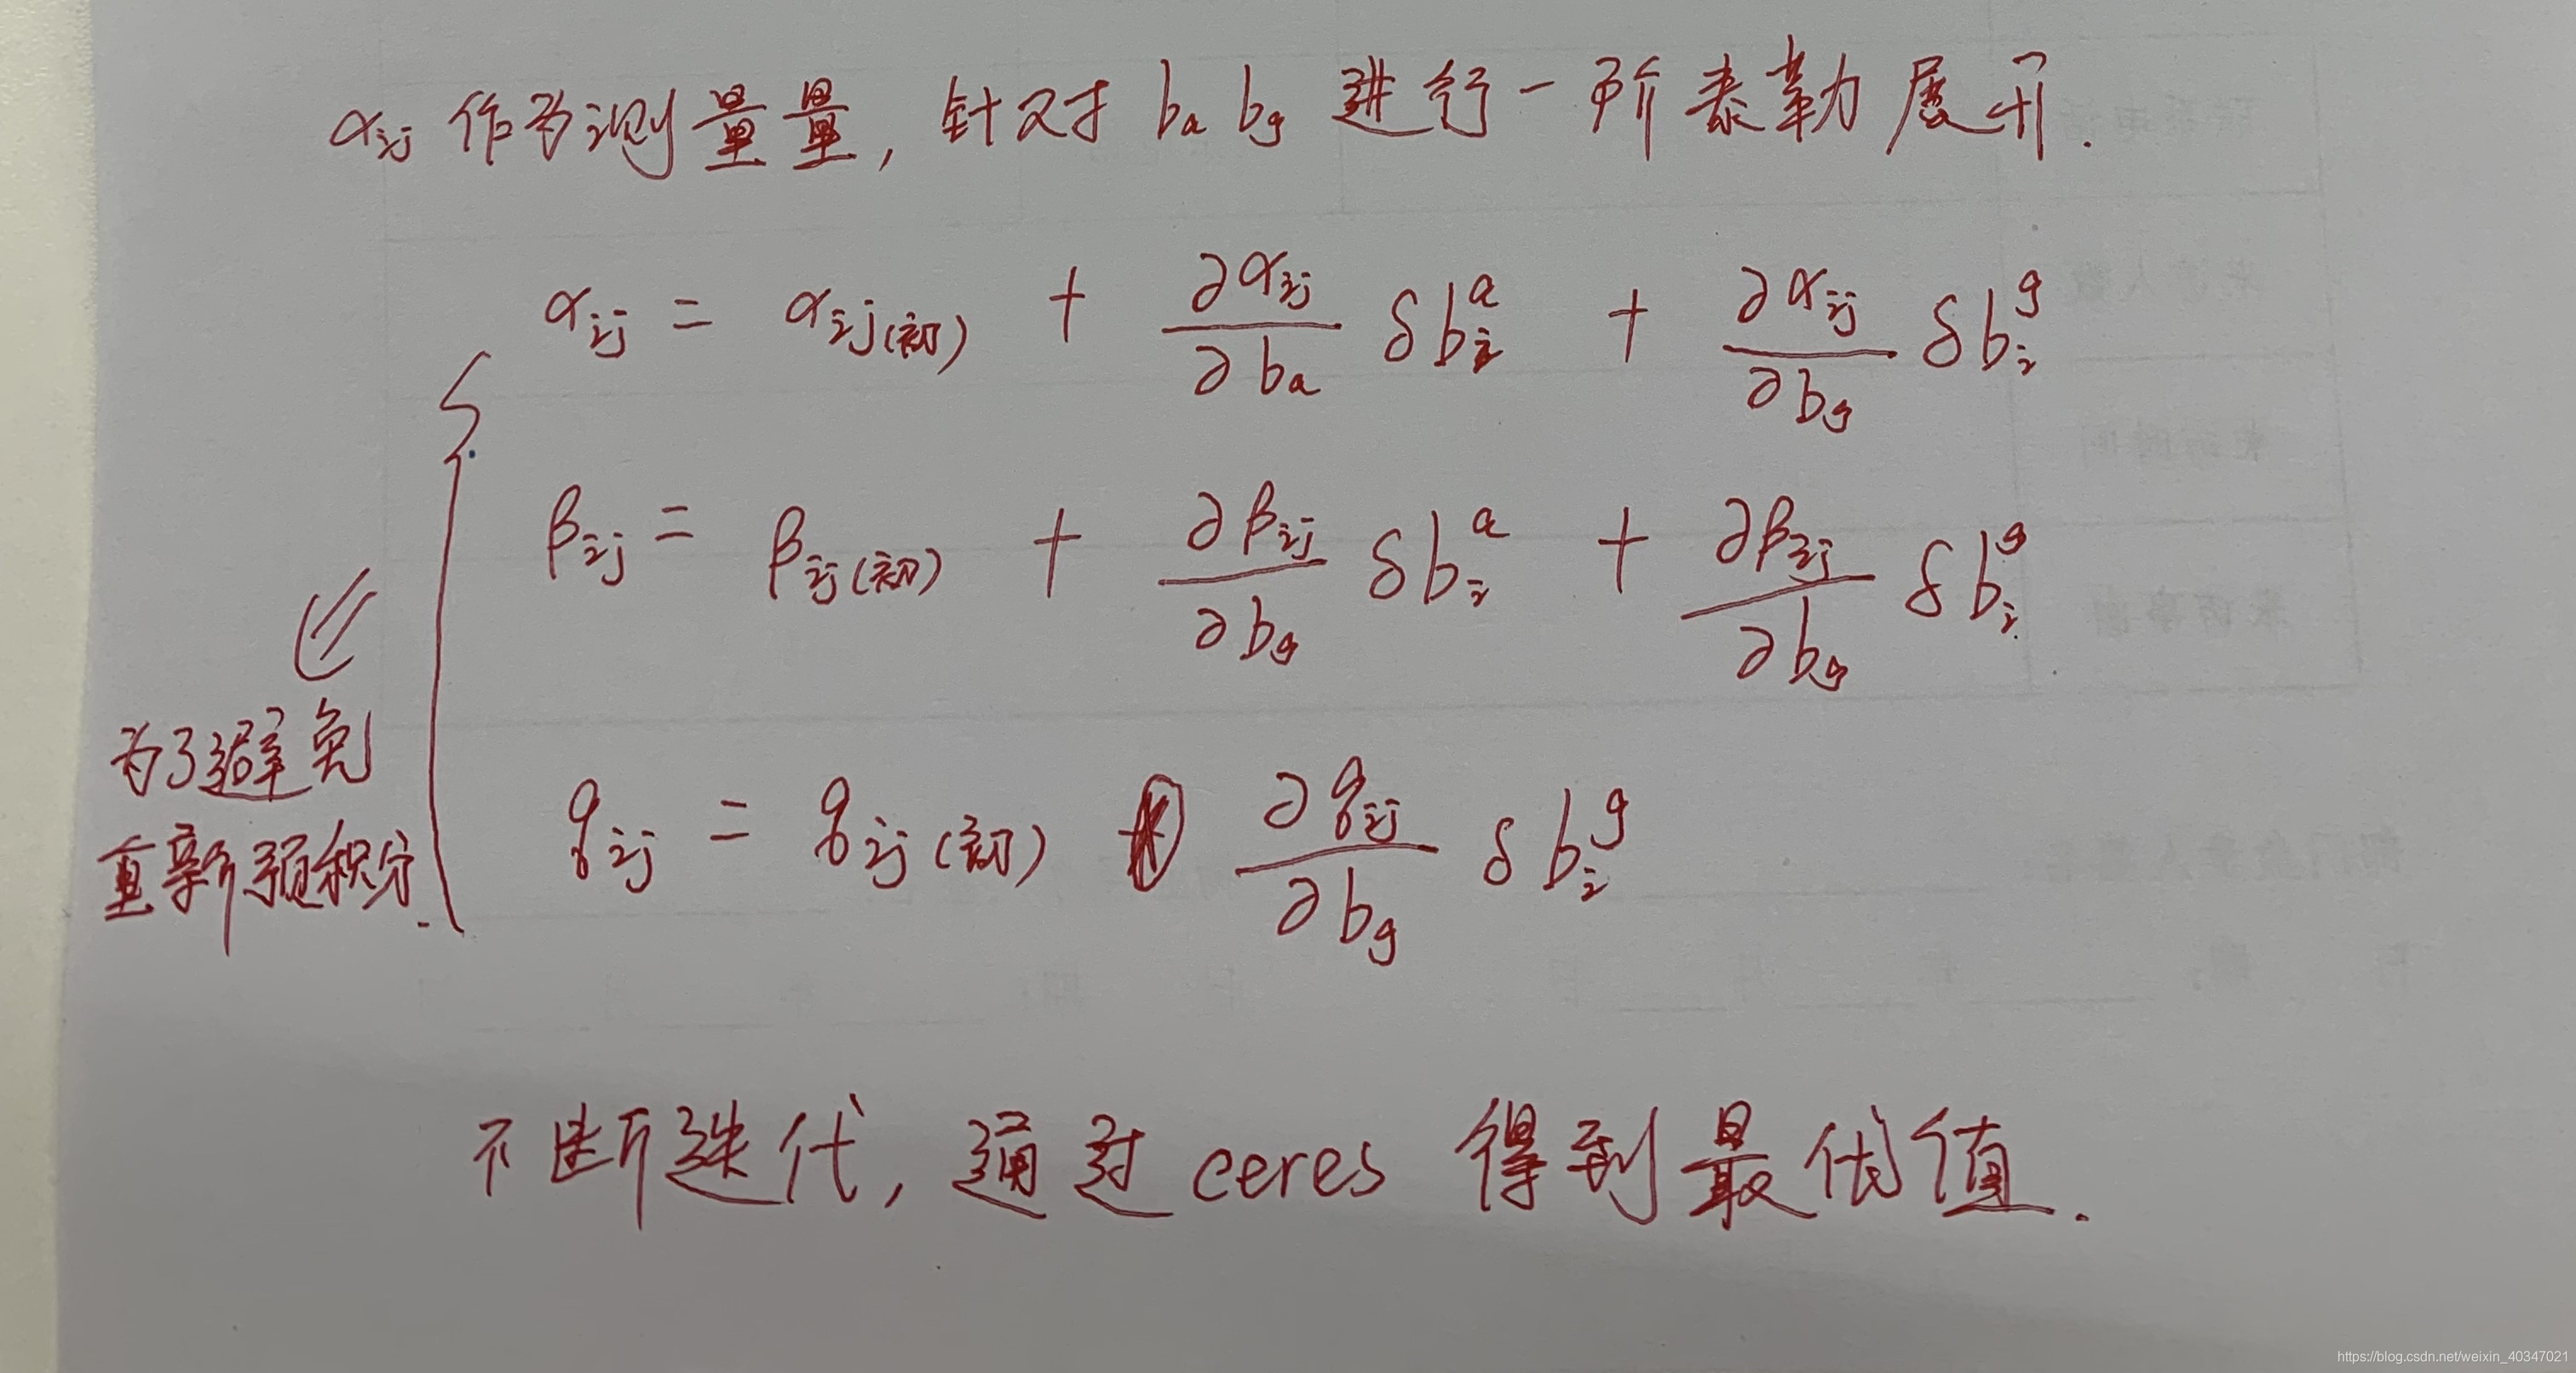 αij 作为测量量, 针对 ba bg 进行一阶泰勒展开.
αij = αij(初) + ∂αij/∂ba δbi^a + ∂αij/∂bg δbi^g
βij = βij(初) + ∂βij/∂bg δbi^a + ∂βij/∂bg δbi^g
为了避免
重新预积分.
qij = qij(初) ∂qij/∂bg δbi^g
不断迭代, 通过 ceres 得到最优值.
https://blog.csdn.net/weixin_40347021